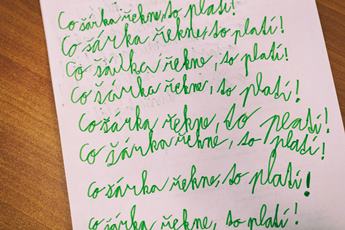 Co šárka řekne, to platí!
Co šárka řekne, to platí!
Co šárka řekne, to platí!
Co šárka řekne, to platí!
Co šárka řekne, to platí!
Co šárka řekne, to platí!
Co šárka řekne, to platí!
Co šárka řekne, to platí!